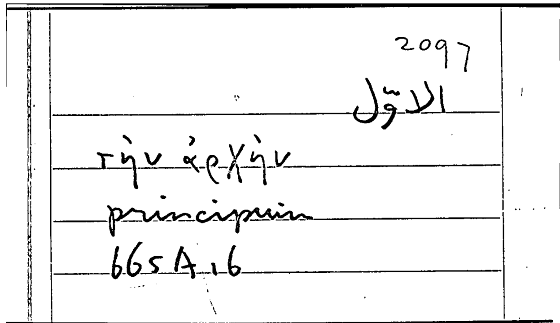 2097
الاوّل
τὴν ἀρχὴν
principium
665A,6